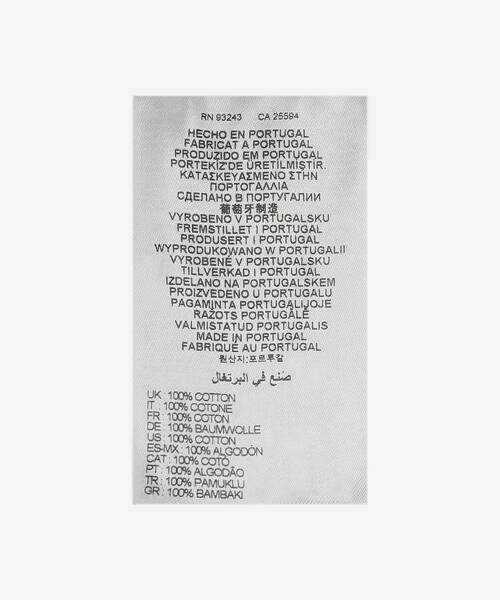 RN 93243 CA 25594
HECHO EN PORTUGAL
FABRICAT A PORTUGAL
PRODUZIDO EM PORTUGAL
PORTEKİZ'DE ÜRETİLMİŞTİR.
ΚΑΤΑΣΚΕΥΑΣΜΕΝΟ ΣΤΗΝ
ΠΟΡΤΟΓΑΛΛΙΑ
СДЕЛАНО В ПОРТУГАЛИИ
葡萄牙制造
VYROBENO V PORTUGALSKU
FREMSTILLET I PORTUGAL
PRODUSERT I PORTUGAL
WYPRODUKOWANO W PORTUGALII
VYROBENÉ V PORTUGALSKU
TILLVERKAD I PORTUGAL
IZDELANO NA PORTUGALSKEM
PROIZVEDENO U PORTUGALU
PAGAMINTA PORTUGALIJOJE
RAŽOTS PORTUGĀLĒ
VALMISTATUD PORTUGALIS
MADE IN PORTUGAL
FABRIQUÉ AU PORTUGAL
원산지:포르투갈
صُنع في البرتغال
UK : 100% COTTON
IT : 100% COTONE
FR : 100% COTON
DE : 100% BAUMWOLLE
US : 100% COTTON
ES-MX : 100% ALGODÓN
CAT : 100% COTÓ
PT : 100% ALGODÃO
TR : 100% PAMUKLU
GR : 100% ΒΑΜΒΑΚΙ